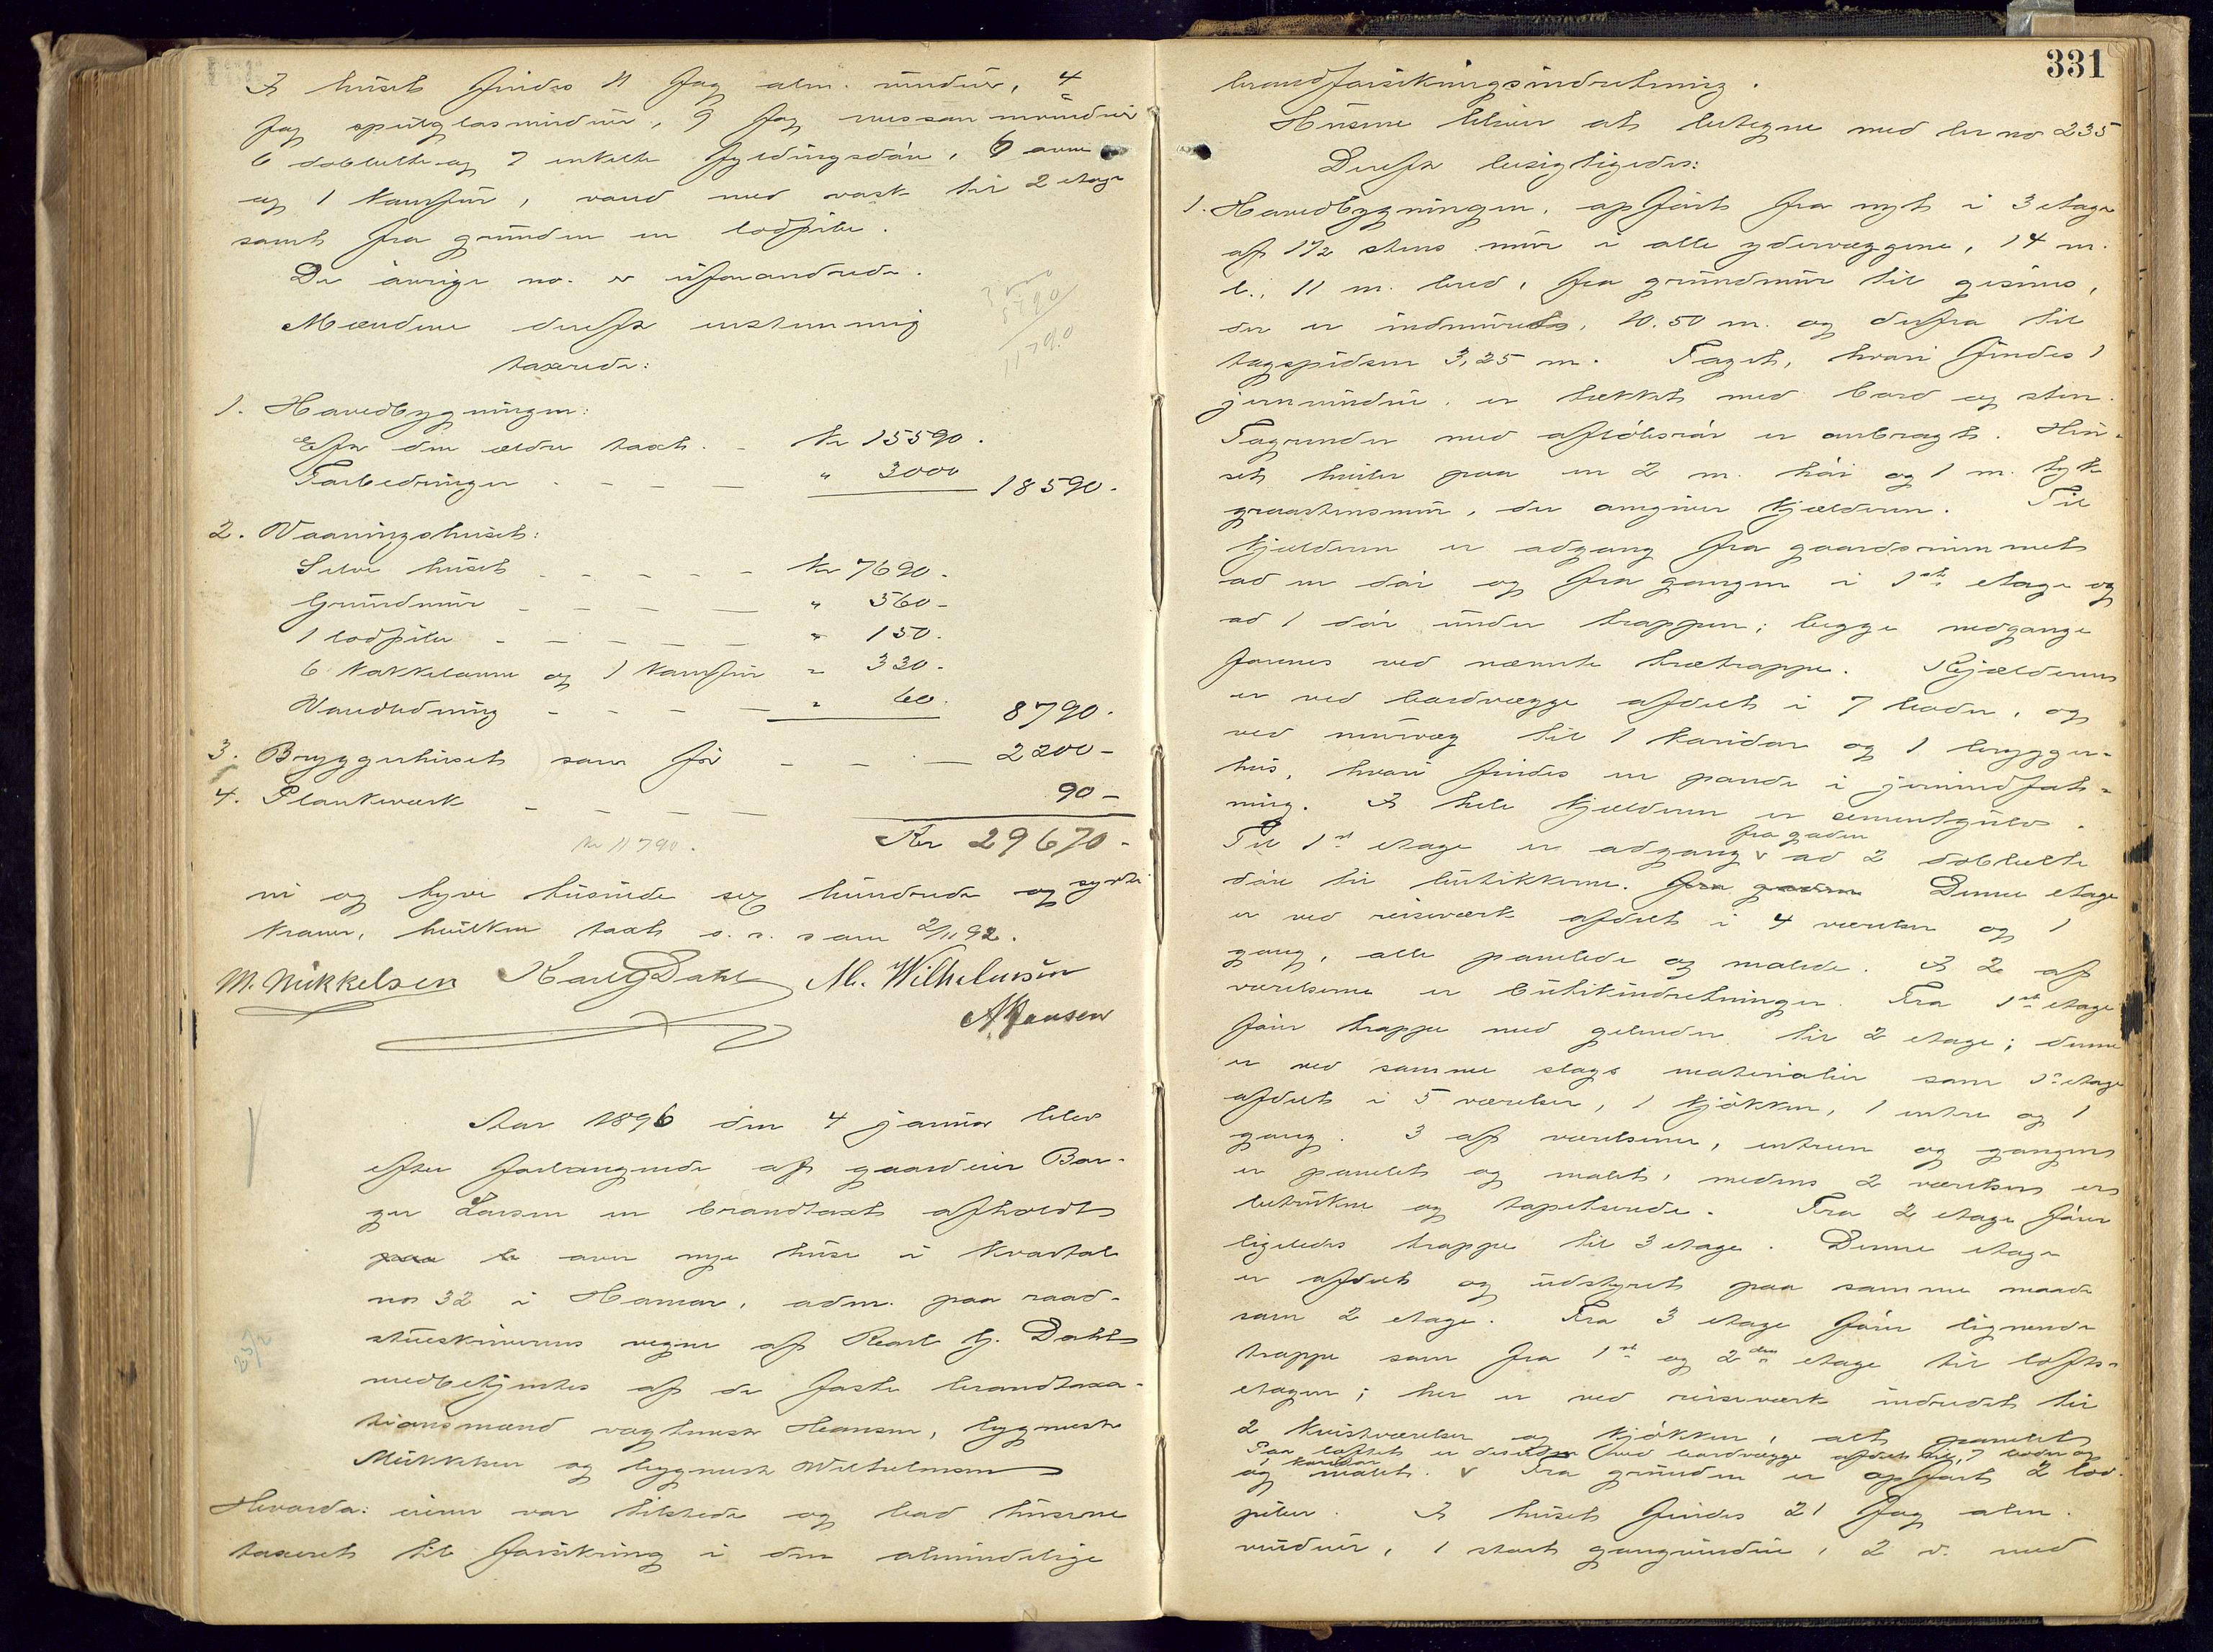 I huset findes 11 fag alm. vinduer, 4
fag speilglasvinduer, 9 fag vinduer
6 dobbelte og 7 enkelte fyldingsdøre, 6 ovne
og 1 komfur, vand med vask til 2 etage
samt fra grunden en lodpibe.
De øvrige no. er uforandrede.
Mændene derefter enstemmig
taxerede:
1. Hovedbygningen:
Efter den ældre taxt - Kr 15590.
Forbedringer - - - - " 3000 18590.
2. Vaaningshuset:
Selve huset - - - - - Kr 7690.
Grundmur - - - - " 560-
1 lodpibe - - - - - " 150.
6 kakkelovne og 1 komfur " 330.
Vandledning - - - - " 60. 8790.
3. Bryggerhuset som før - - - 2200-
4. Plankeværk - - - - 90-
Kr 11790. Kr 29670-
ni og tyve tusinde sex hundrede og sytti
kroner, hvilken taxt o. s. som 2/11 92.
M. Mikkelsen Karl G Dahl M. Wilhelmsen
A Hansen
Aar 1896 den 4 januar blev
efter forlangende af gaardeier Bor-
ger Larsen en brandtaxt afholdt
paa b over nye huse i kvartal
no 32 i Hamar, adm. paa raad-
stueskriverens vegne af Karl G. Dahl
medbetjentes af de faste brandtaxa-
tionsmænd vagtmester Hansen, bygmester
Mikkelsen og bygmester Wilhelmsen
Hvorda: eieren var tilstede og bad husene
taxeret til forsikring i den almindelige
331
brandforsikringsindretning.
Husene bliver at betegne med br no 235
Derefter besigtigedes:
1. Hovedbygningen, opført fra nyt i 3 etage
af 1 1/2 stens mur i alle ydervæggene, 14 m.
l., 11 m. bred, fra grundmur til gesims,
der er indmuret, 10.50 m. og derfra til
tagspidsen 3,25 m. Taget, hvori findes 1
jernvindue, er tækket med bord og sten.
Tagrender med afløbsrør er anbragt. Hu-
set hviler paa en 2 m. høi og 1 m. tyk
graastensmur, der omgiver kjælderen. Til
kjælderen er adgang fra gaardsrummet
ad en dør og fra gangen i 1ste etage og
ad 1 dør under trappen; begge nedgange
forenes ved nævnte trætrappe. Kjælderen
er ved bordvægge afdelt i 7 boder, og
ved murvæg til 1 koridor og 1 brygger-
hus, hvori findes en pande i jernindfat-
ning. I hele kjælderen er cementgulv.
fra gaden
Til 1st etage er adgang v ad 2 dobbelte
døre til butikkerne. fra gaden Denne etage
er ved reisværk afdelt i 4 værelser og 1
gang, alle panelede og malede. I 2 af
værelserne er butikindretninger. Fra 1st etage
fører trappe med gelænder til 2 etage; denne
er ved samme slags materialier som 1st etage
afdelt i 5 værelser, 1 kjøkken, 1 entre og 1
gang. 3 af værelserne, entreen og gangen
er panelet og malet, medens 2 værelser er
betrukne og tapetserede. Fra 2 etage fører
ligeledes trappe til 3 etage. Denne etage
er afdelt og udstyret paa samme maade
som 2 etage. Fra 3 etage fører lignende
trappe som fra 1st og 2den etage til lofts-
etagen; her er ved reisværk indredet til
2 kvistværelser og kjøkken, alt panelet
Paa loftet er desuden ved bordvægge afdelt til 7 boder og
1 koridor
og malet. v Fra grunden er opført 2 lod-
piber. I huset findes 21 fag alm.
vinduer, 1 stort gangvindue, 2 v. med